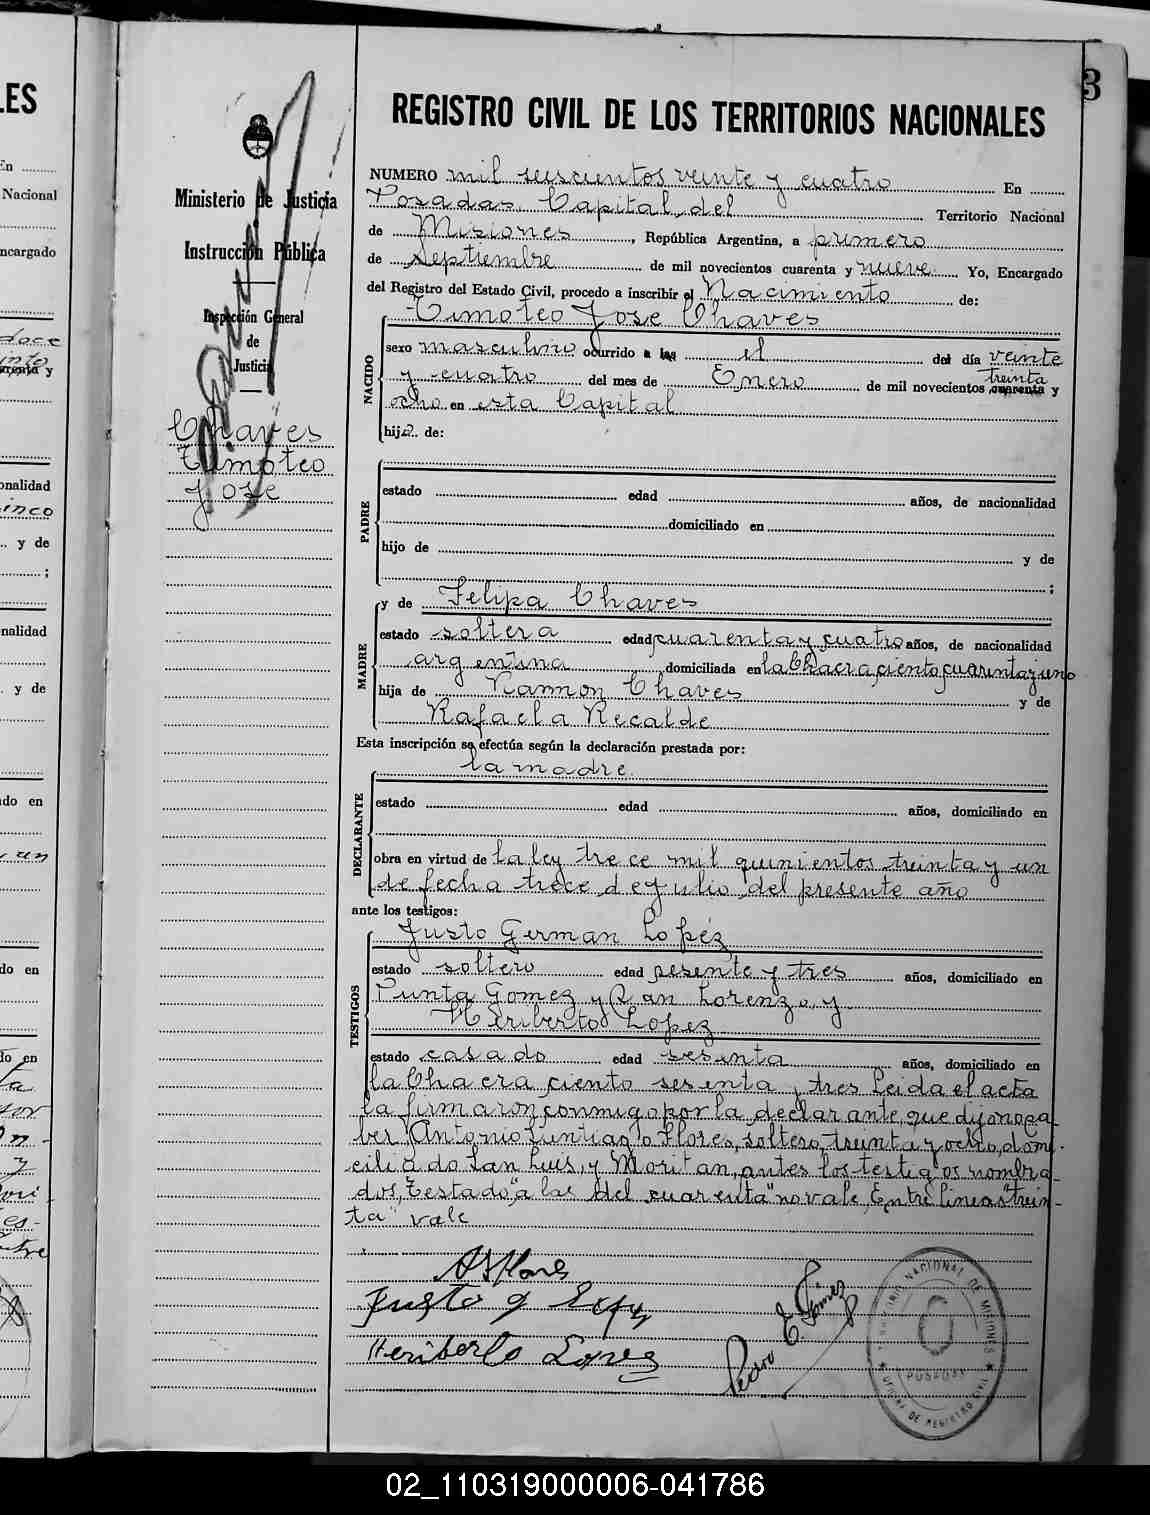 LES
En
Nacional
encargado
doce
cuarenta y
onalidad
inco
y de
;
nalidad
y de
do en
y un
do en
do en
3
REGISTRO CIVIL DE LOS TERRITORIOS NACIONALES
Ministerio de Justicia
Instrucción Pública
Inspección General
de
Justicia
Chaves
Timoteo
Jose
NUMERO mil seiscientos veinte y cuatro En
Posadas, Capital del Territorio Nacional
de Misiones, República Argentina, a primero
de Septiembre de mil novecientos cuarenta y nueve. Yo, Encargado
del Registro del Estado Civil, procedo a inscribir el Nacimiento de:
Timoteo Jose Chaves
NACIDO
sexo masculino ocurrido a las el del día veinte
y cuatro del mes de Enero de mil novecientos cuarenta y
treinta
ocho en esta Capital
hijo de:
PADRE
estado edad años, de nacionalidad
domiciliado en
hijo de y de
;
MADRE
y de Felipa Chaves
estado soltera edad cuarenta y cuatro años, de nacionalidad
argentina domiciliada en la Chacra ciento cuarenta y uno
hija de Ramon Chaves y de
Rafaela Recalde
Esta inscripción se efectúa según la declaración prestada por:
la madre.
DECLARANTE
estado edad años, domiciliado en
obra en virtud de la ley trece mil quinientos treinta y un
de fecha trece de Julio del presente año
ante los testigos:
TESTIGOS
Justo German Lopez
estado soltero edad sesente y tres años, domiciliado en
Punta Gomez y San Lorenzo, y
Heriberto Lopez
estado casado edad sesenta años, domiciliado en
la Chacra ciento sesenta y tres Leida el acta
la firmaron conmigo por la declarante, que dijo no sa-
ber Antonio Santiago Flores, soltero, treinta y ocho, domi-
ciliado San Luis, y Moritan, antes los testigos nombra-
dos, Testado, "a las del cuarenta" no vale, Entre lineas "trein-
ta" vale
AS Flores
Justo G Lopez
Heriberto Lopez
Pedro E. Gómez
TERRITORIO NACIONAL DE MISIONES
POSADAS
OFICINA DE REGISTRO CIVIL
02_110319000006-041786